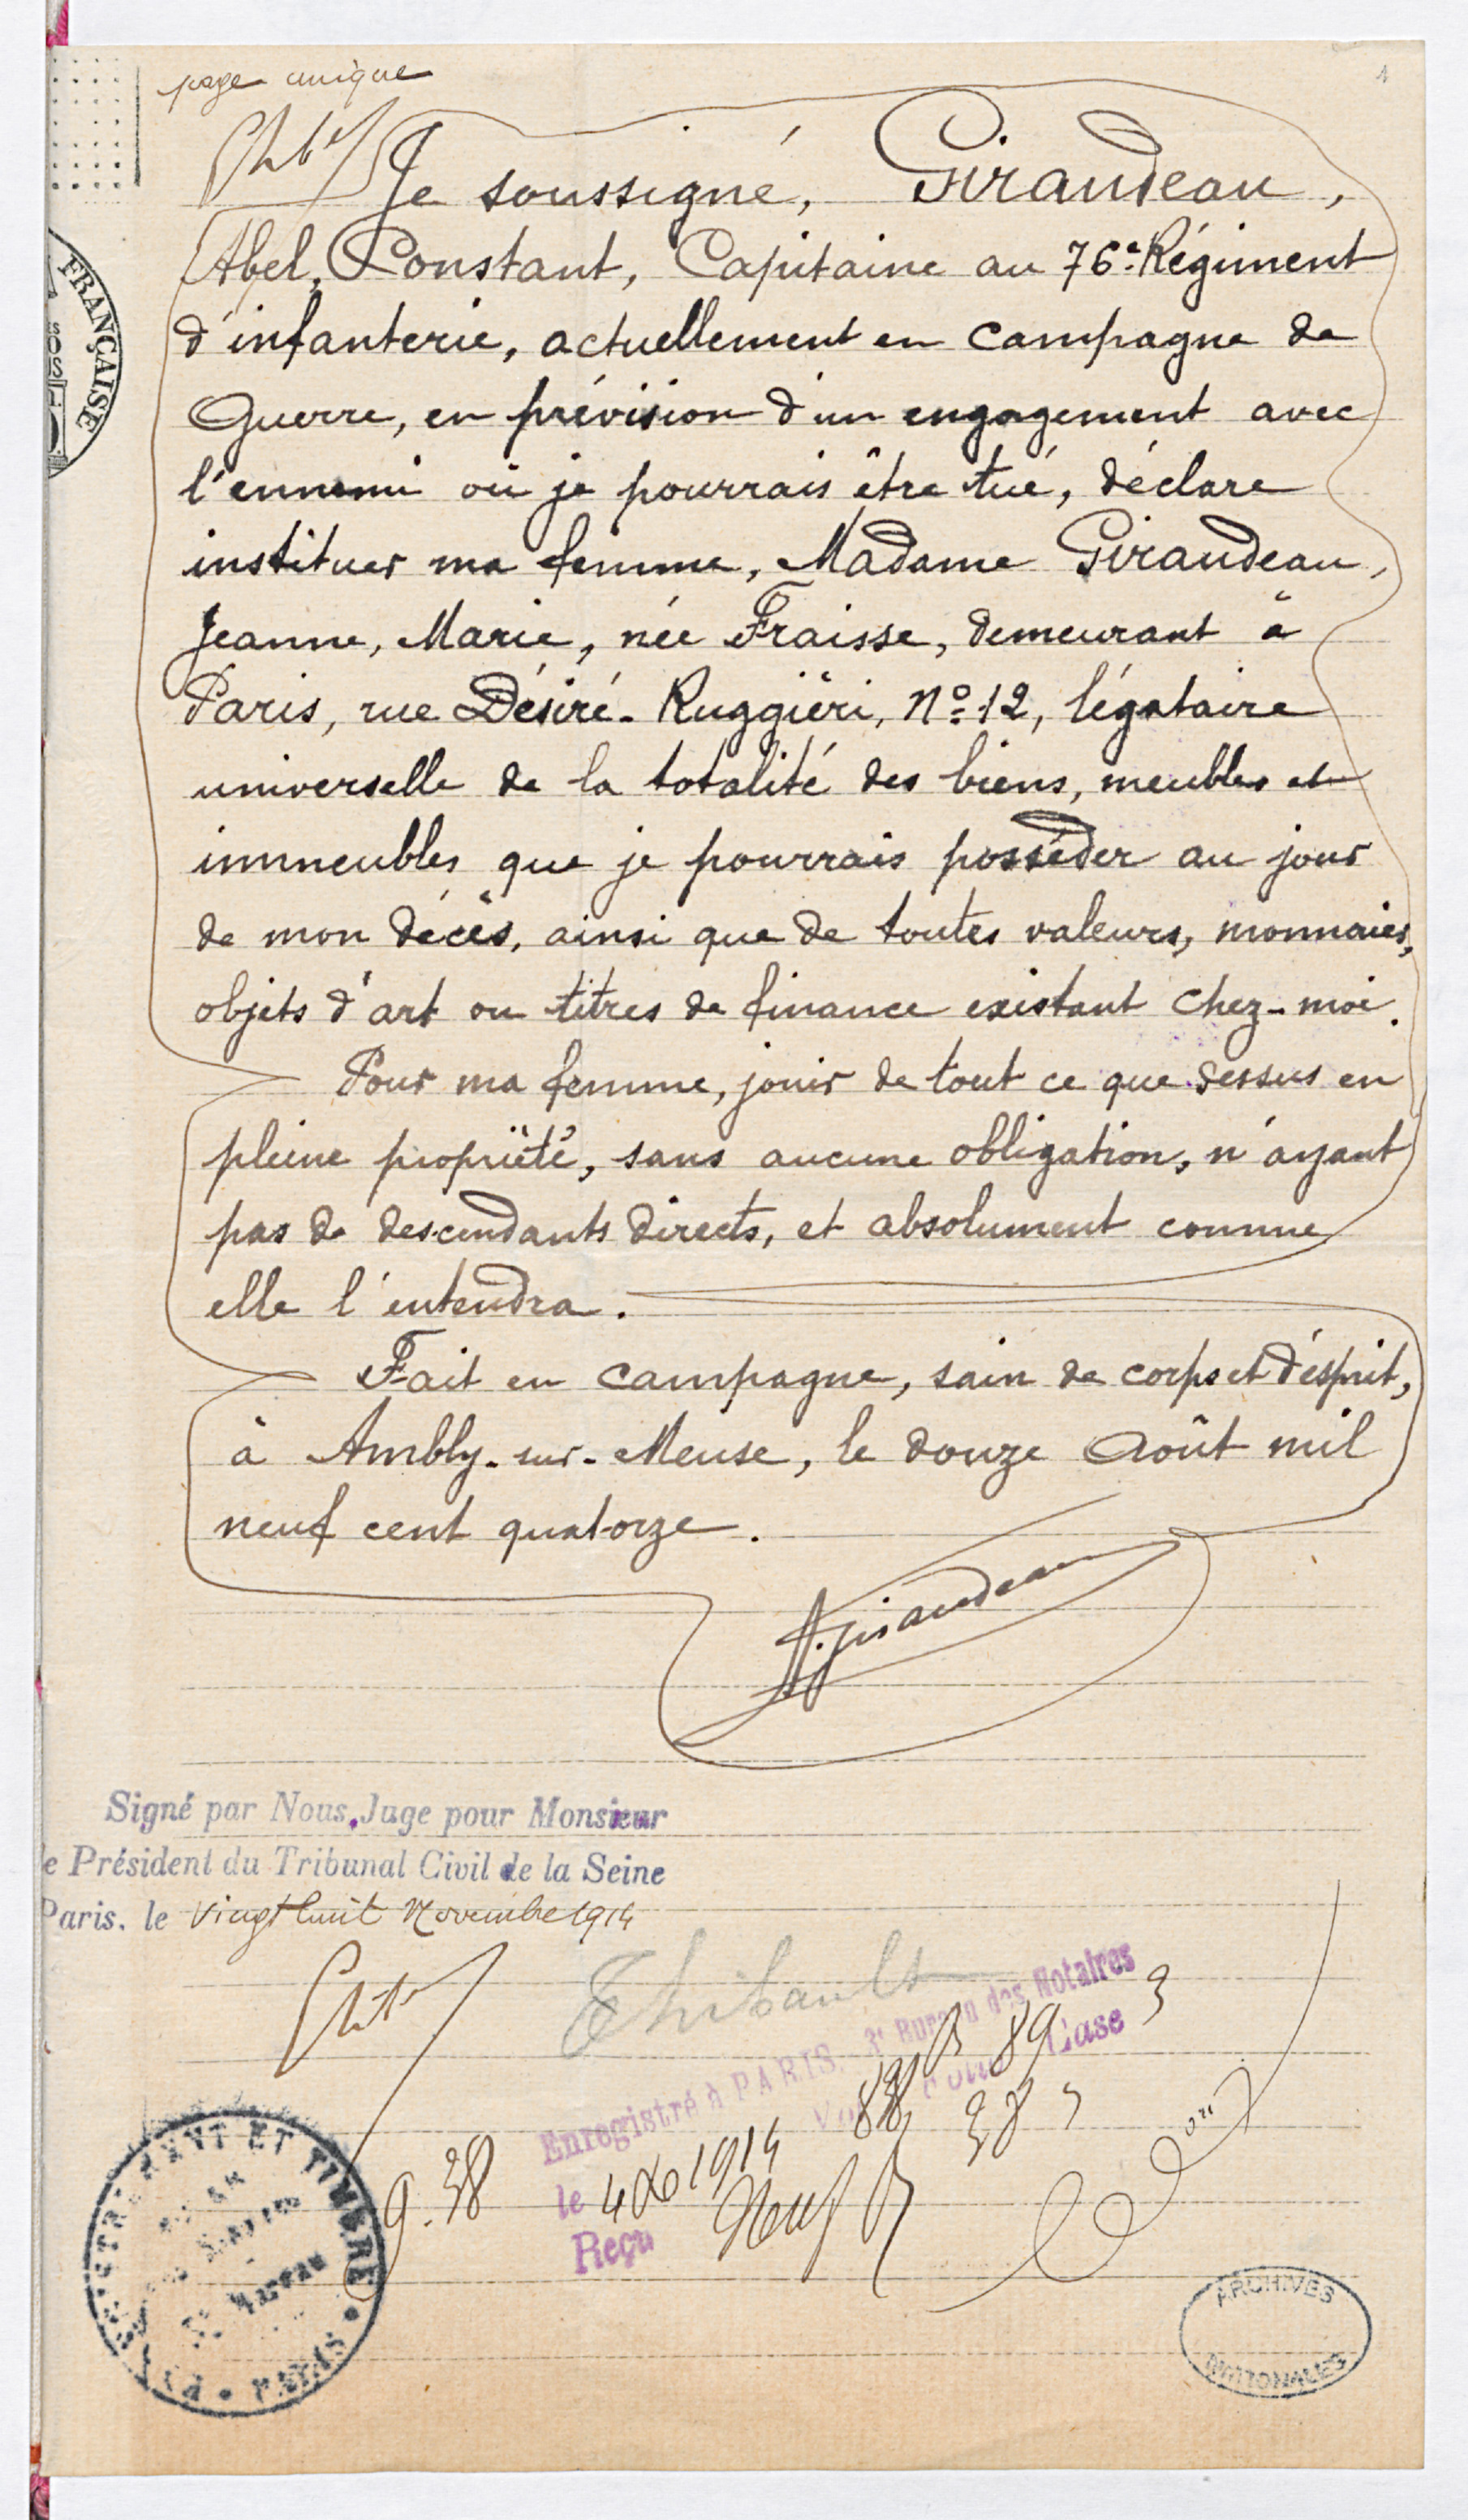 page unique
1
Je soussigné, Giraudeau,
Abel, Constant, Capitaine au 76e Régiment
d'infanterie, actuellement en campagne de
Guerre, en prévision d'un engagement avec
l'ennemi où je pourrais être tué, déclare
instituer ma femme, Madame Giraudeau,
Jeanne, Marie, née Fraisse, demeurant à
Paris, rue Désiré-Ruggiéri, No 12, légataire
universelle de la totalité des biens, meubles et
immeubles que je pourrais posséder au jour
de mon décès, ainsi que de toutes valeurs, monnaies,
objets d'art ou titres de finance existant chez-moi.
Pour ma femme, jouir de tout ce que dessus en
pleine propriété, sans aucune obligation, n'ayant
pas de descendants directs, et absolument comme
elle l'entendra.
Fait en campagne, sain de corps et d'esprit,
à Ambly-sur-Meuse, le douze Août mil
neuf cent quatorze.
A. Giraudeau
FRANÇAISE
Signé par Nous, Juge pour Monsieur
le Président du Tribunal Civil de la Seine
Paris, le vingt huit Novembre 1914
Thibault
Enregistré à PARIS. 3e Bureau des Notaires
89 Case 3
le 4 Xbre 1914
9.38
Reçu Neuf
ENREGISTREMENT ET TIMBRE
PARIS
ARCHIVES
NATIONALES